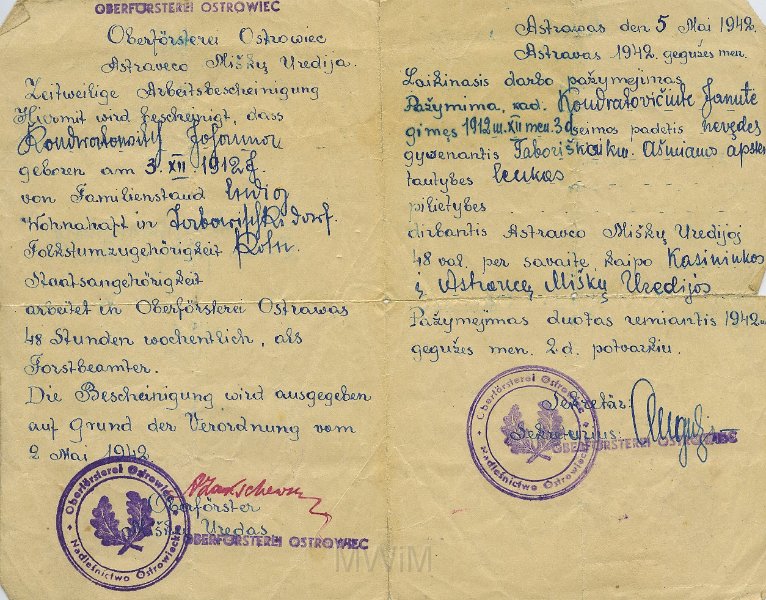 OBERFÖRSTEREI OSTROWIEC
Oberförsterei Ostrowiec
Astraveco Miškų Uredija.
Zeitweilige Arbeitsbescheinigung
Hiermit wird bescheinigt, dass
geboren am 3. XII 1912 J.
von Familienstand ledig
Wohnahaft in
Folkstumzugehörigkeit Poln.
Staatsangehörigkeit
arbeitet in Oberförsterei Ostrawas
48 Stunden wochentlich, als
Forstbeamter.
Die Bescheinigung wird ausgegeben
auf Grund der Verordnung vom
2 Mai 1942
Oberförster
Uredas
OBERFÖRSTEREI OSTROWIEC
Oberförsterei Ostrowiec
Nadleśnictwo Ostrowieckie
Astrawas den 5 Mai 1942.
Astravas 1942 gegužės men.
Laikinasis darbo pažymėjimas
Pažymima, kad. Kondratovičiute Janute
gimęs 1912 m. XII men. 3 d šeimos padėtis nevedęs
gyvenantis Ašmianos apskr
tautybės lenkas
pilietybės
dirbantis Astraveco Miškų Uredijoj
48 val. per savaitę kaipo Kasininkos
į Miškų Uredijos
Pažymėjimas duotas remiantis 1942 m
gegužės men. 2 d. potvarkiu.
Sekretär
Sekretorius
OBERFÖRSTEREI OSTROWIEC
Oberförsterei Ostrowiec
Nadleśnictwo Ostrowieckie
MWiM